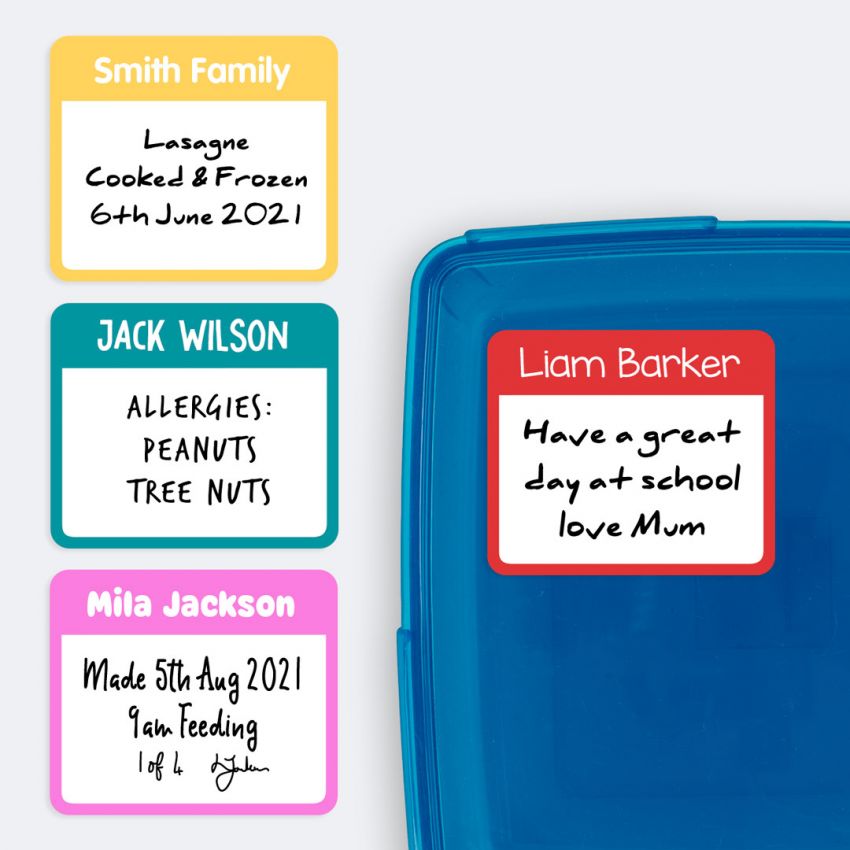 Smith Family
Lasagne
Cooked & Frozen
6th June 2021
JACK WILSON
ALLERGIES:
PEANUTS
TREE NUTS
Mila Jackson
Made 5th Aug 2021
9am Feeding
1 of 4
Liam Barker
Have a great
day at school
love Mum